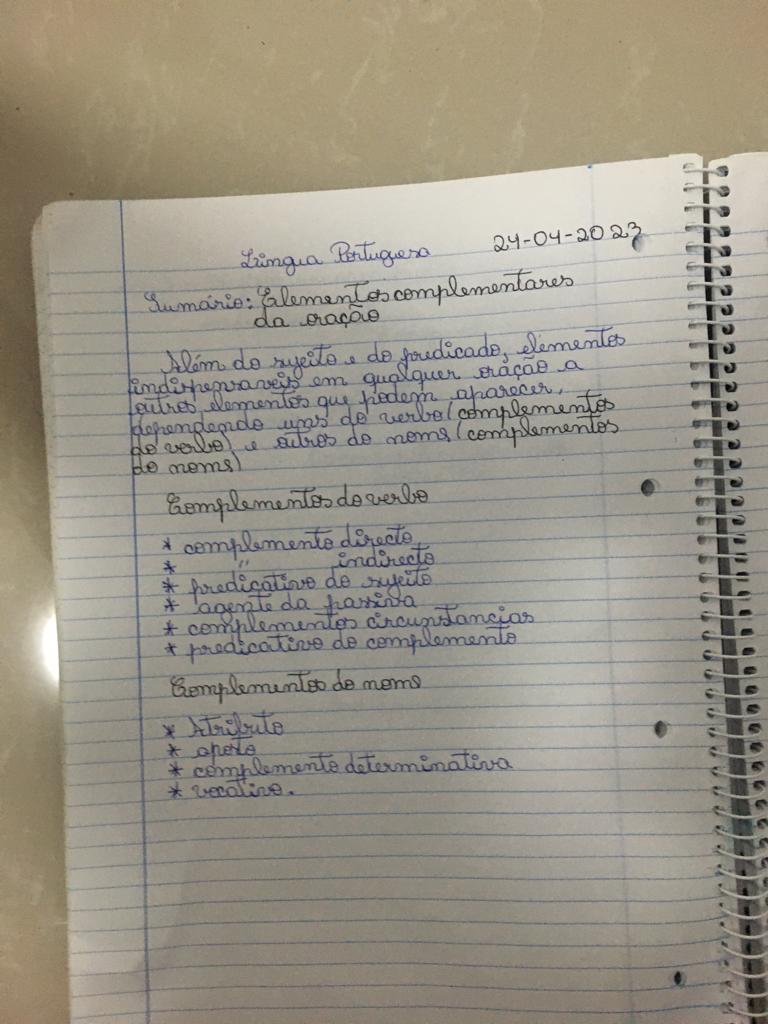 Língua Portuguesa 24-04-2023
Sumário: Elementos complementares
da oração
Além do sujeito e do predicado, elementos
indispensaveis em qualquer oração a
outros elementos que podem aparecer,
dependendo uns do verbo (complementos
do verbo) e outros do nome (complementos
do nome)
Complementos do verbo
* complemento directo
* " indirecto
* predicativo do sujeito
* agente da passiva
* complementos circunstancias
* predicativo do complemento
Complementos do nome
* Atributo
* aposto
* complemento determinativa
* vocativo.